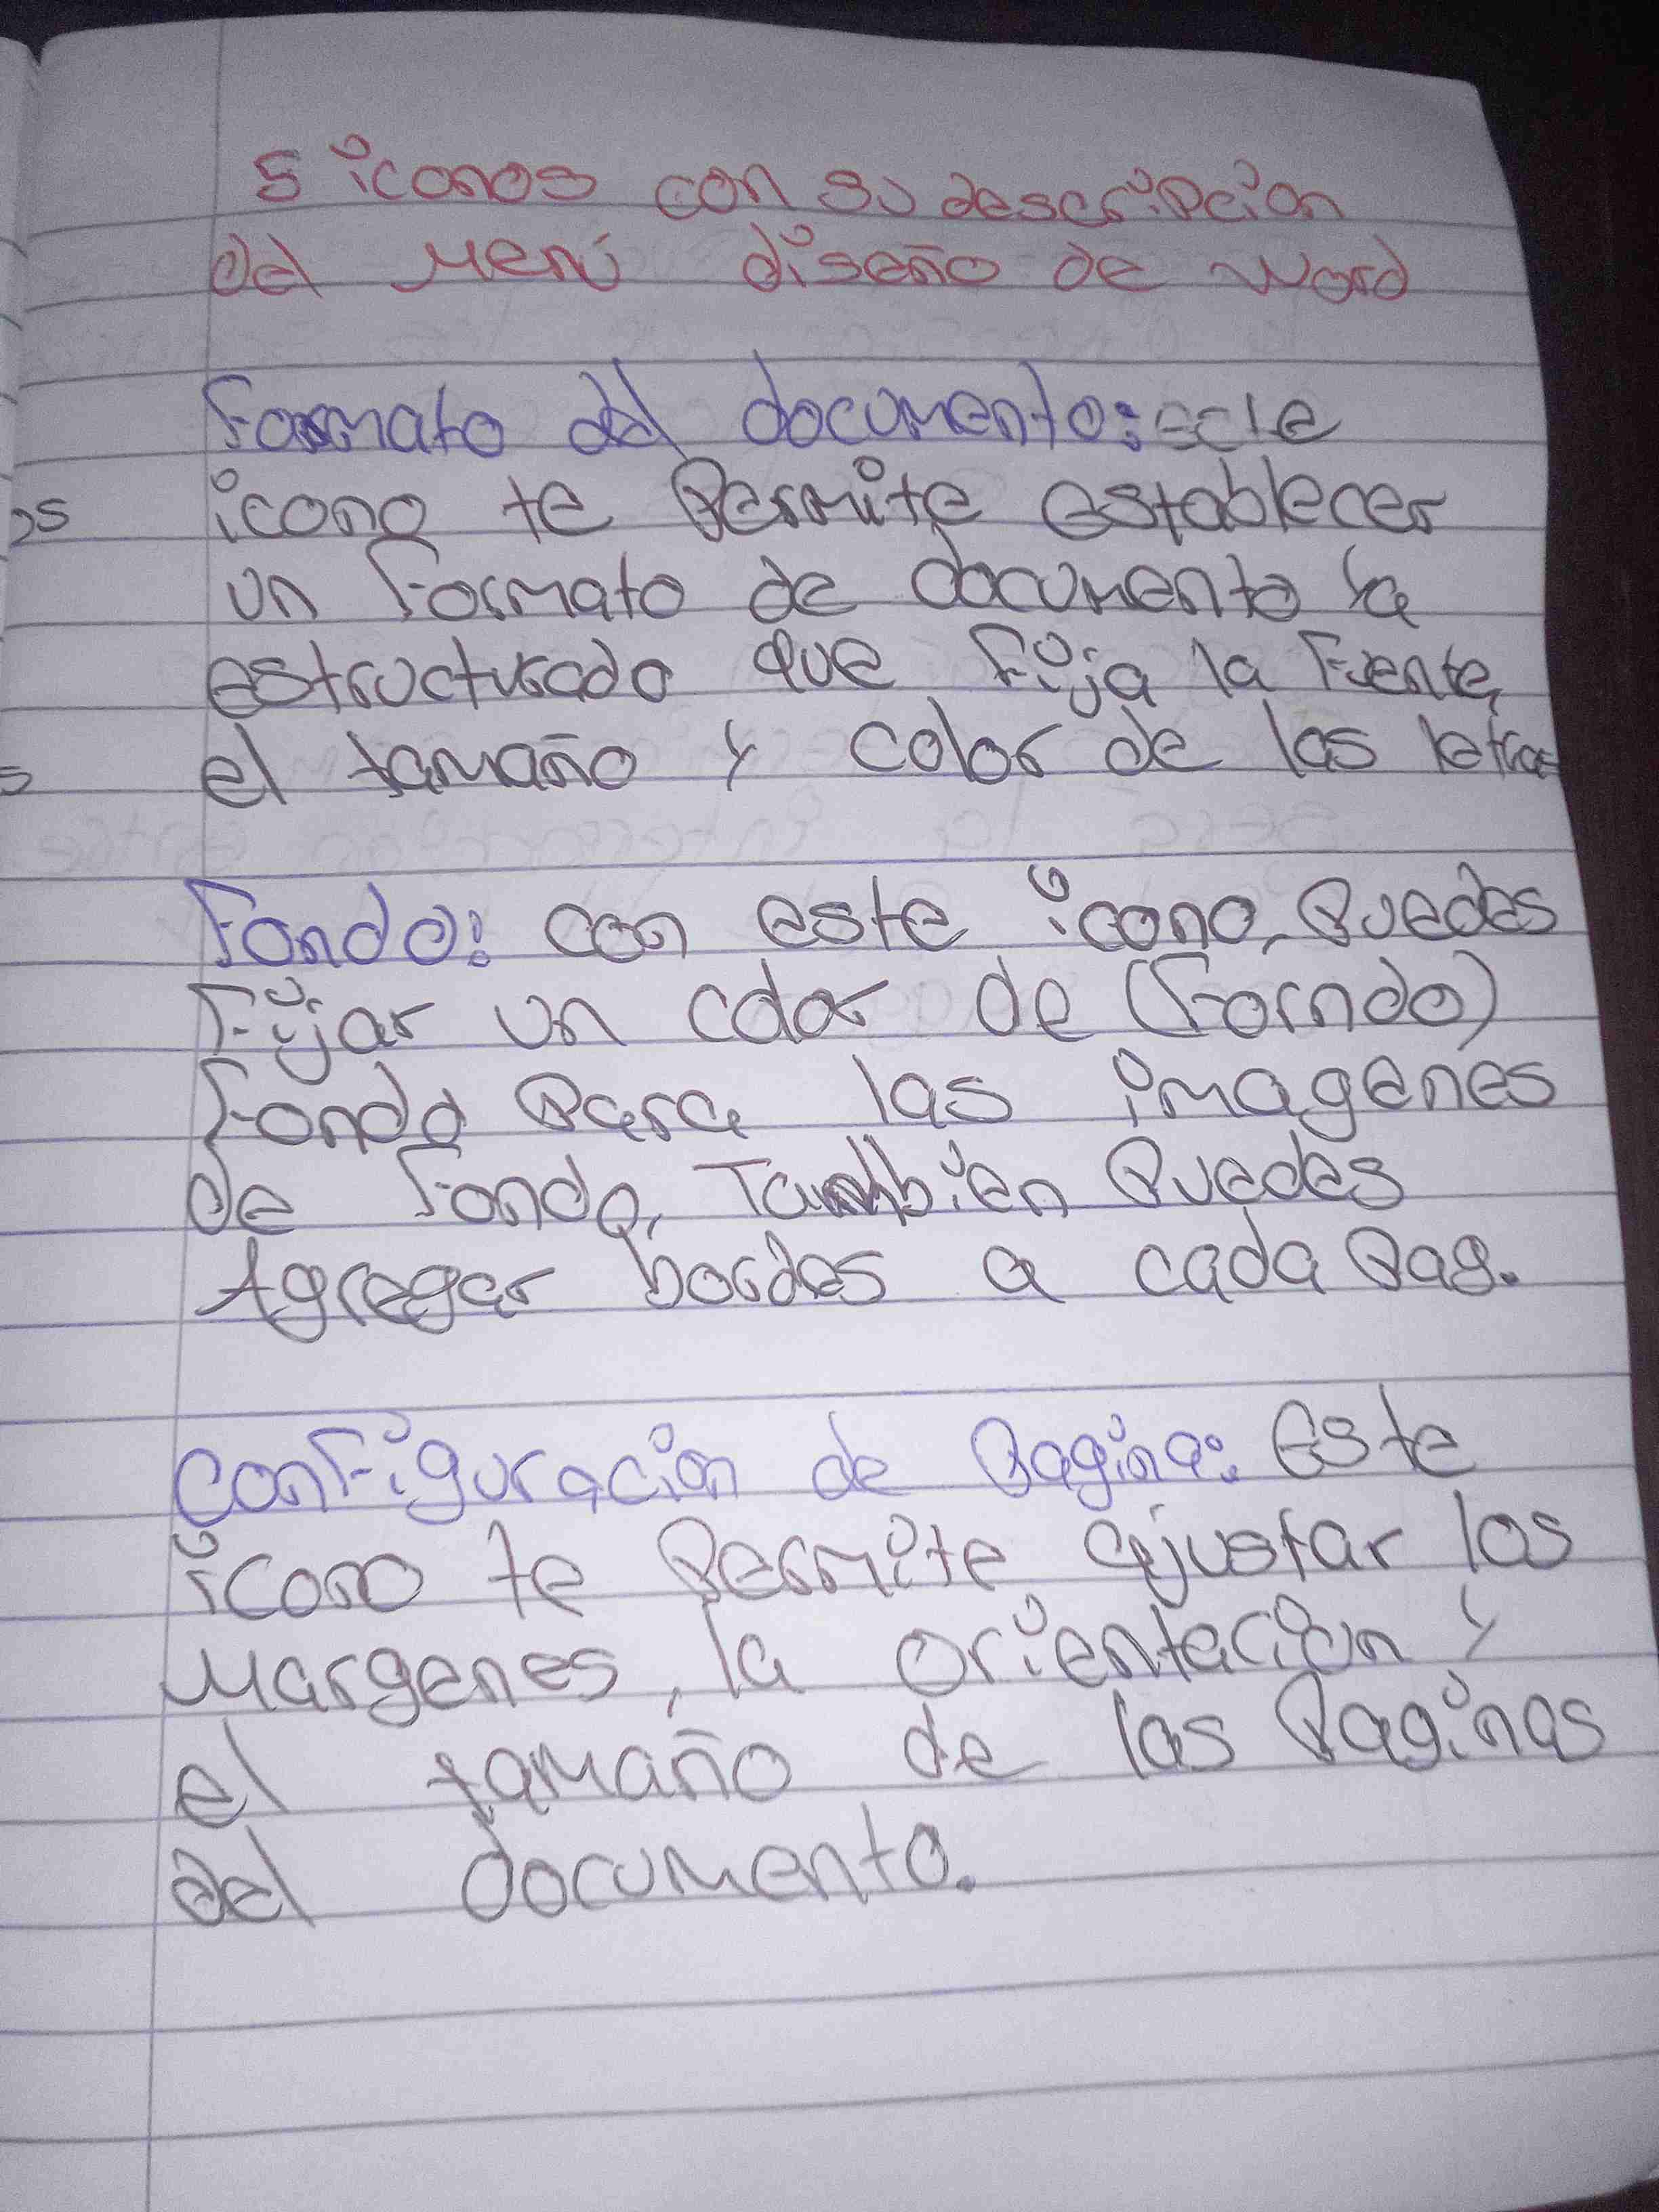 5 iconos con su descripcion
del Menú diseño de Word
Formato del documento: este
icono te Permite establecer
un Formato de documento la
estructurado que Fija la Fuente,
el tamaño y color de las letras
Fondo: con este icono, Puedes
Fijar un color de (Forndo)
Fondo Para las imagenes
de Fondo, También Puedes
Agregar bordes a cada Pag.
conFiguración de Pagina: Este
icono te Permite ajustar los
Margenes, la orientación y
el tamaño de las Paginas
del documento.